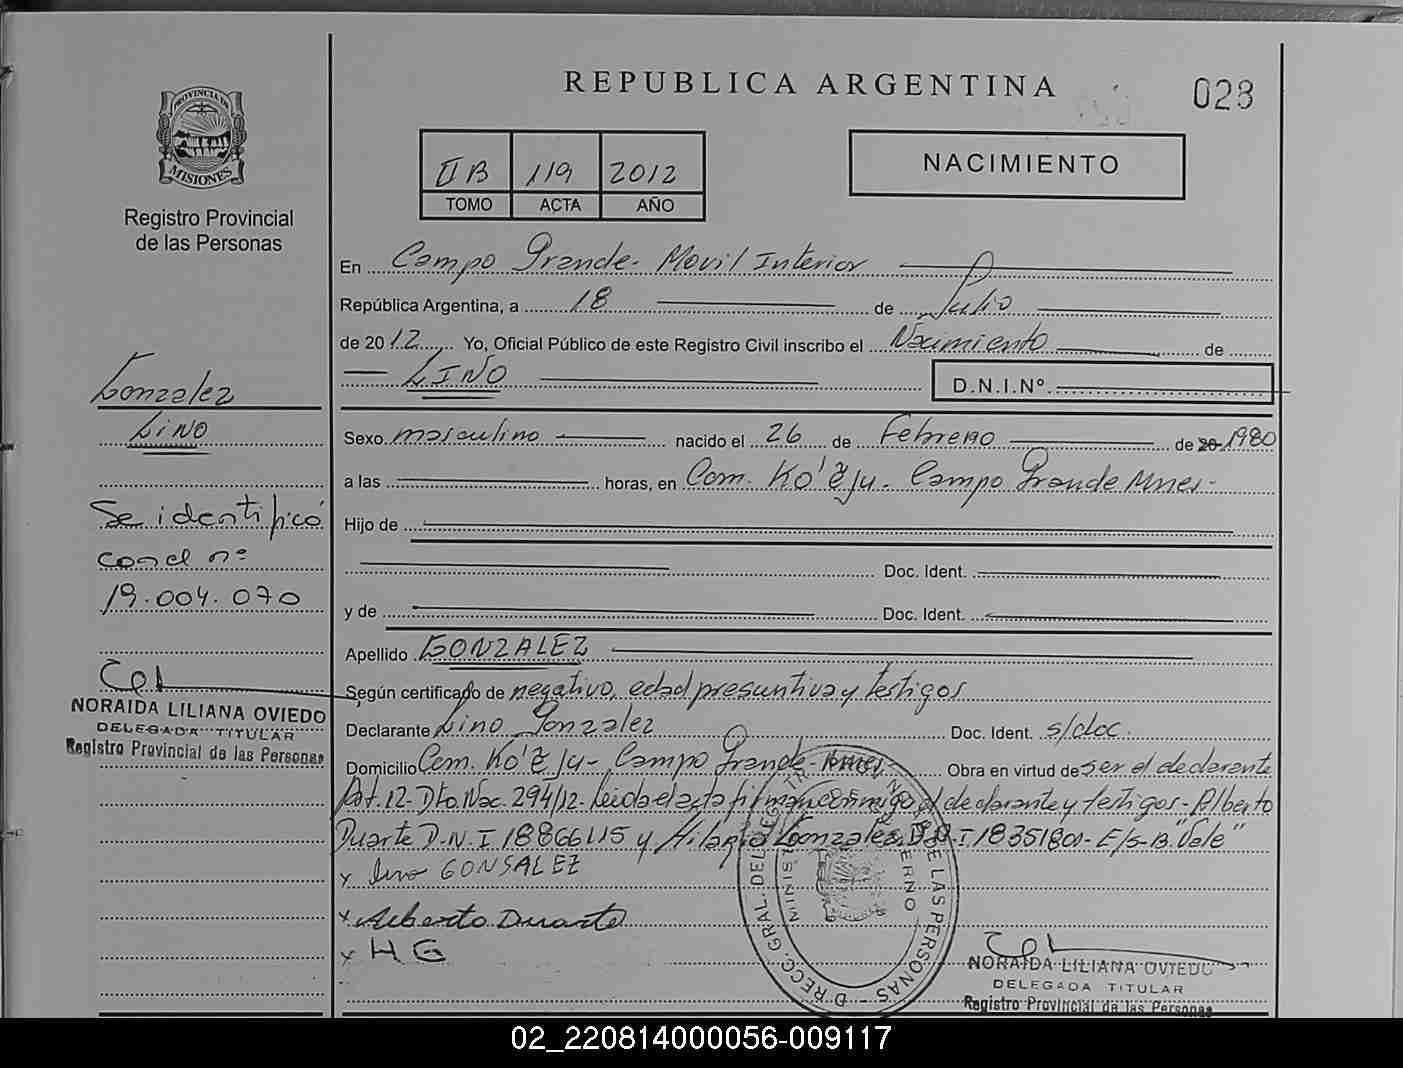 REPUBLICA ARGENTINA
028
PROVINCIA DE
MISIONES
Registro Provincial
de las Personas
II B 119 2012
TOMO ACTA AÑO
NACIMIENTO
En Campo Grande - Movil Interior
República Argentina, a 18 de Julio
de 2012 Yo, Oficial Público de este Registro Civil inscribo el Nacimiento de
LINO
D.N.I.Nº
Gonzalez
Lino
Se identificó
con el nº
19.004.070
NORAIDA LILIANA OVIEDO
DELEGADA TITULAR
Registro Provincial de las Personas
Sexo masculino nacido el 26 de Febrero de 20 1980
a las horas, en Com. Ko'ẽ Ju - Campo Grande Mnes -
Hijo de
Doc. Ident.
y de Doc. Ident.
Apellido GONZALEZ
Según certificado de negativo, edad presuntiva y testigos
Declarante Lino Gonzalez Doc. Ident. s/doc.
Domicilio Com. Ko'ẽ Ju - Campo Grande - Mnes - Obra en virtud de ser el declarante
Art. 12 - Dto. Nac. 294/12 - Leida el acta firman conmigo el declarante y testigos - Alberto
Duarte D.N.I 18866415 y Hilario Gonzalez D.N.I 18351800 - E/S-B. "Vale"
x Lino GONSALEZ
x Alberto Duarte
x H G
NORAIDA LILIANA OVIEDO
DELEGADA TITULAR
Registro Provincial de las Personas
02_220814000056-009117